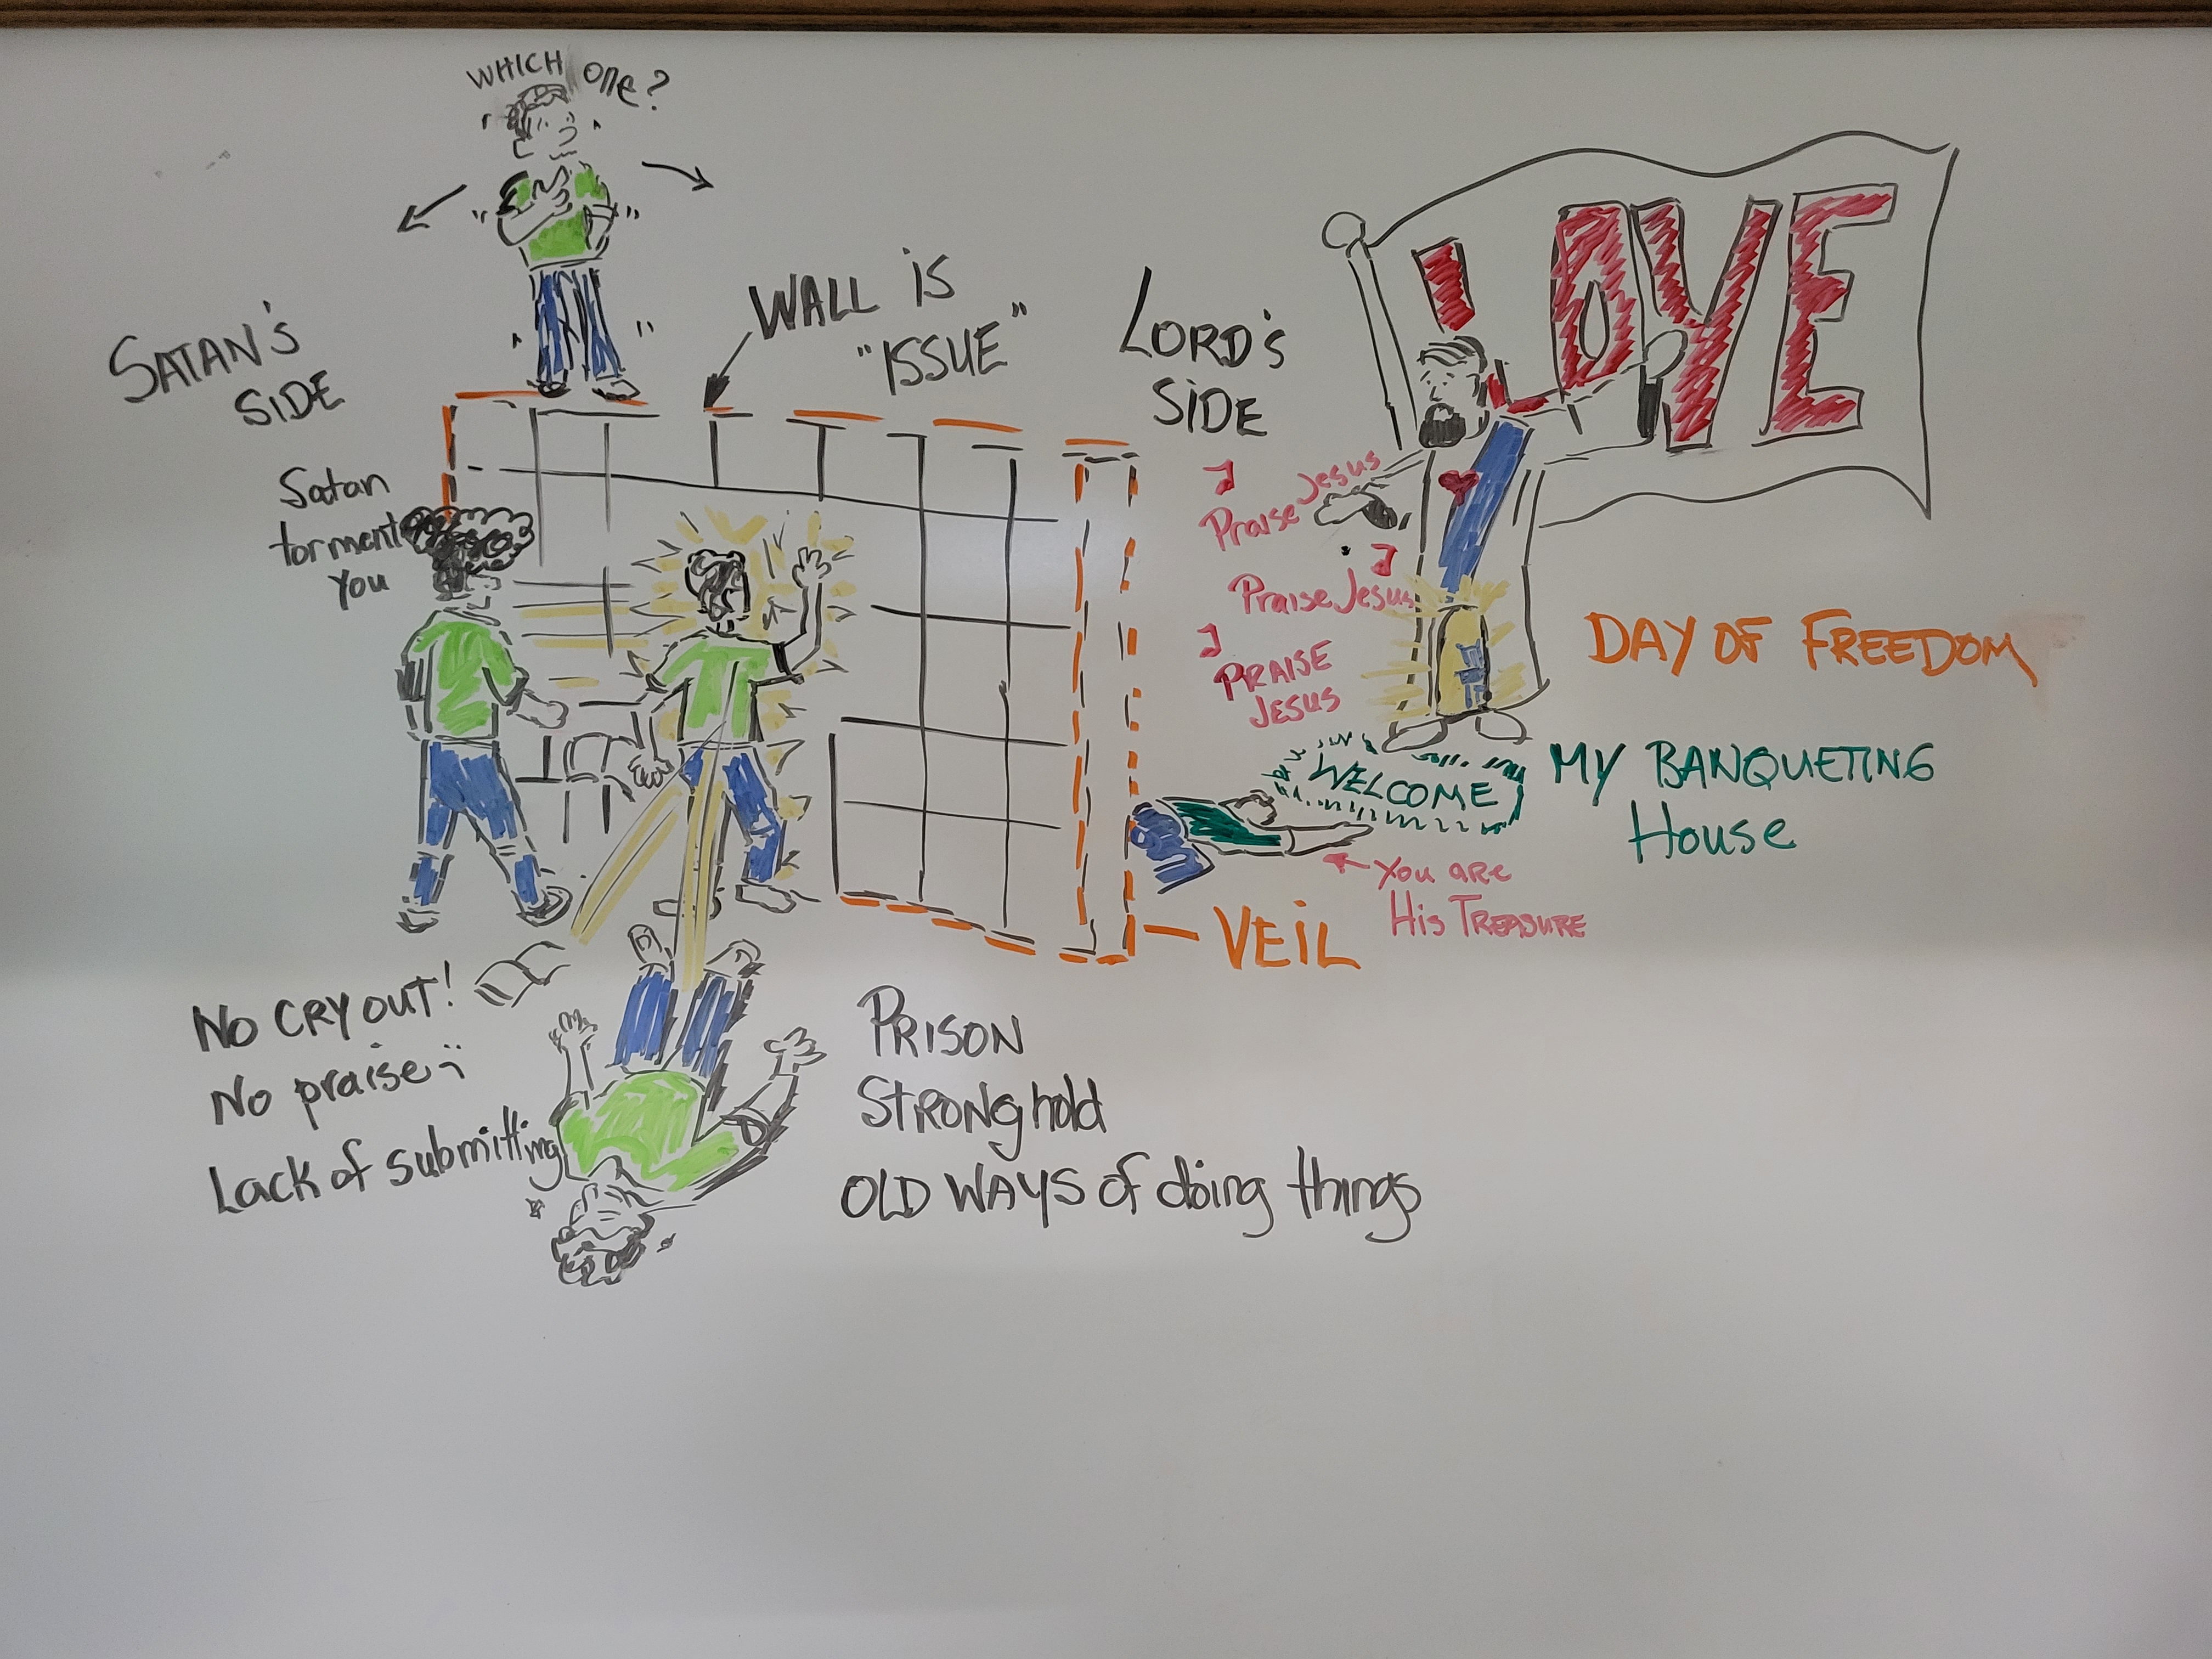 WHICH one?
SATAN'S
SIDE
WALL iS
"ISSUE"
LORD'S
SiDE
LOVE
Satan
torment
you
Praise Jesus
Praise Jesus
PRAISE
JESUS
DAY OF FREEDOM
WELCOME
MY BANQUETING
House
You are
His TREASURE
VEiL
No CRY OUT!
No praise
Lack of submitting
PRISON
STRONGhold
OLD WAYS of doing things